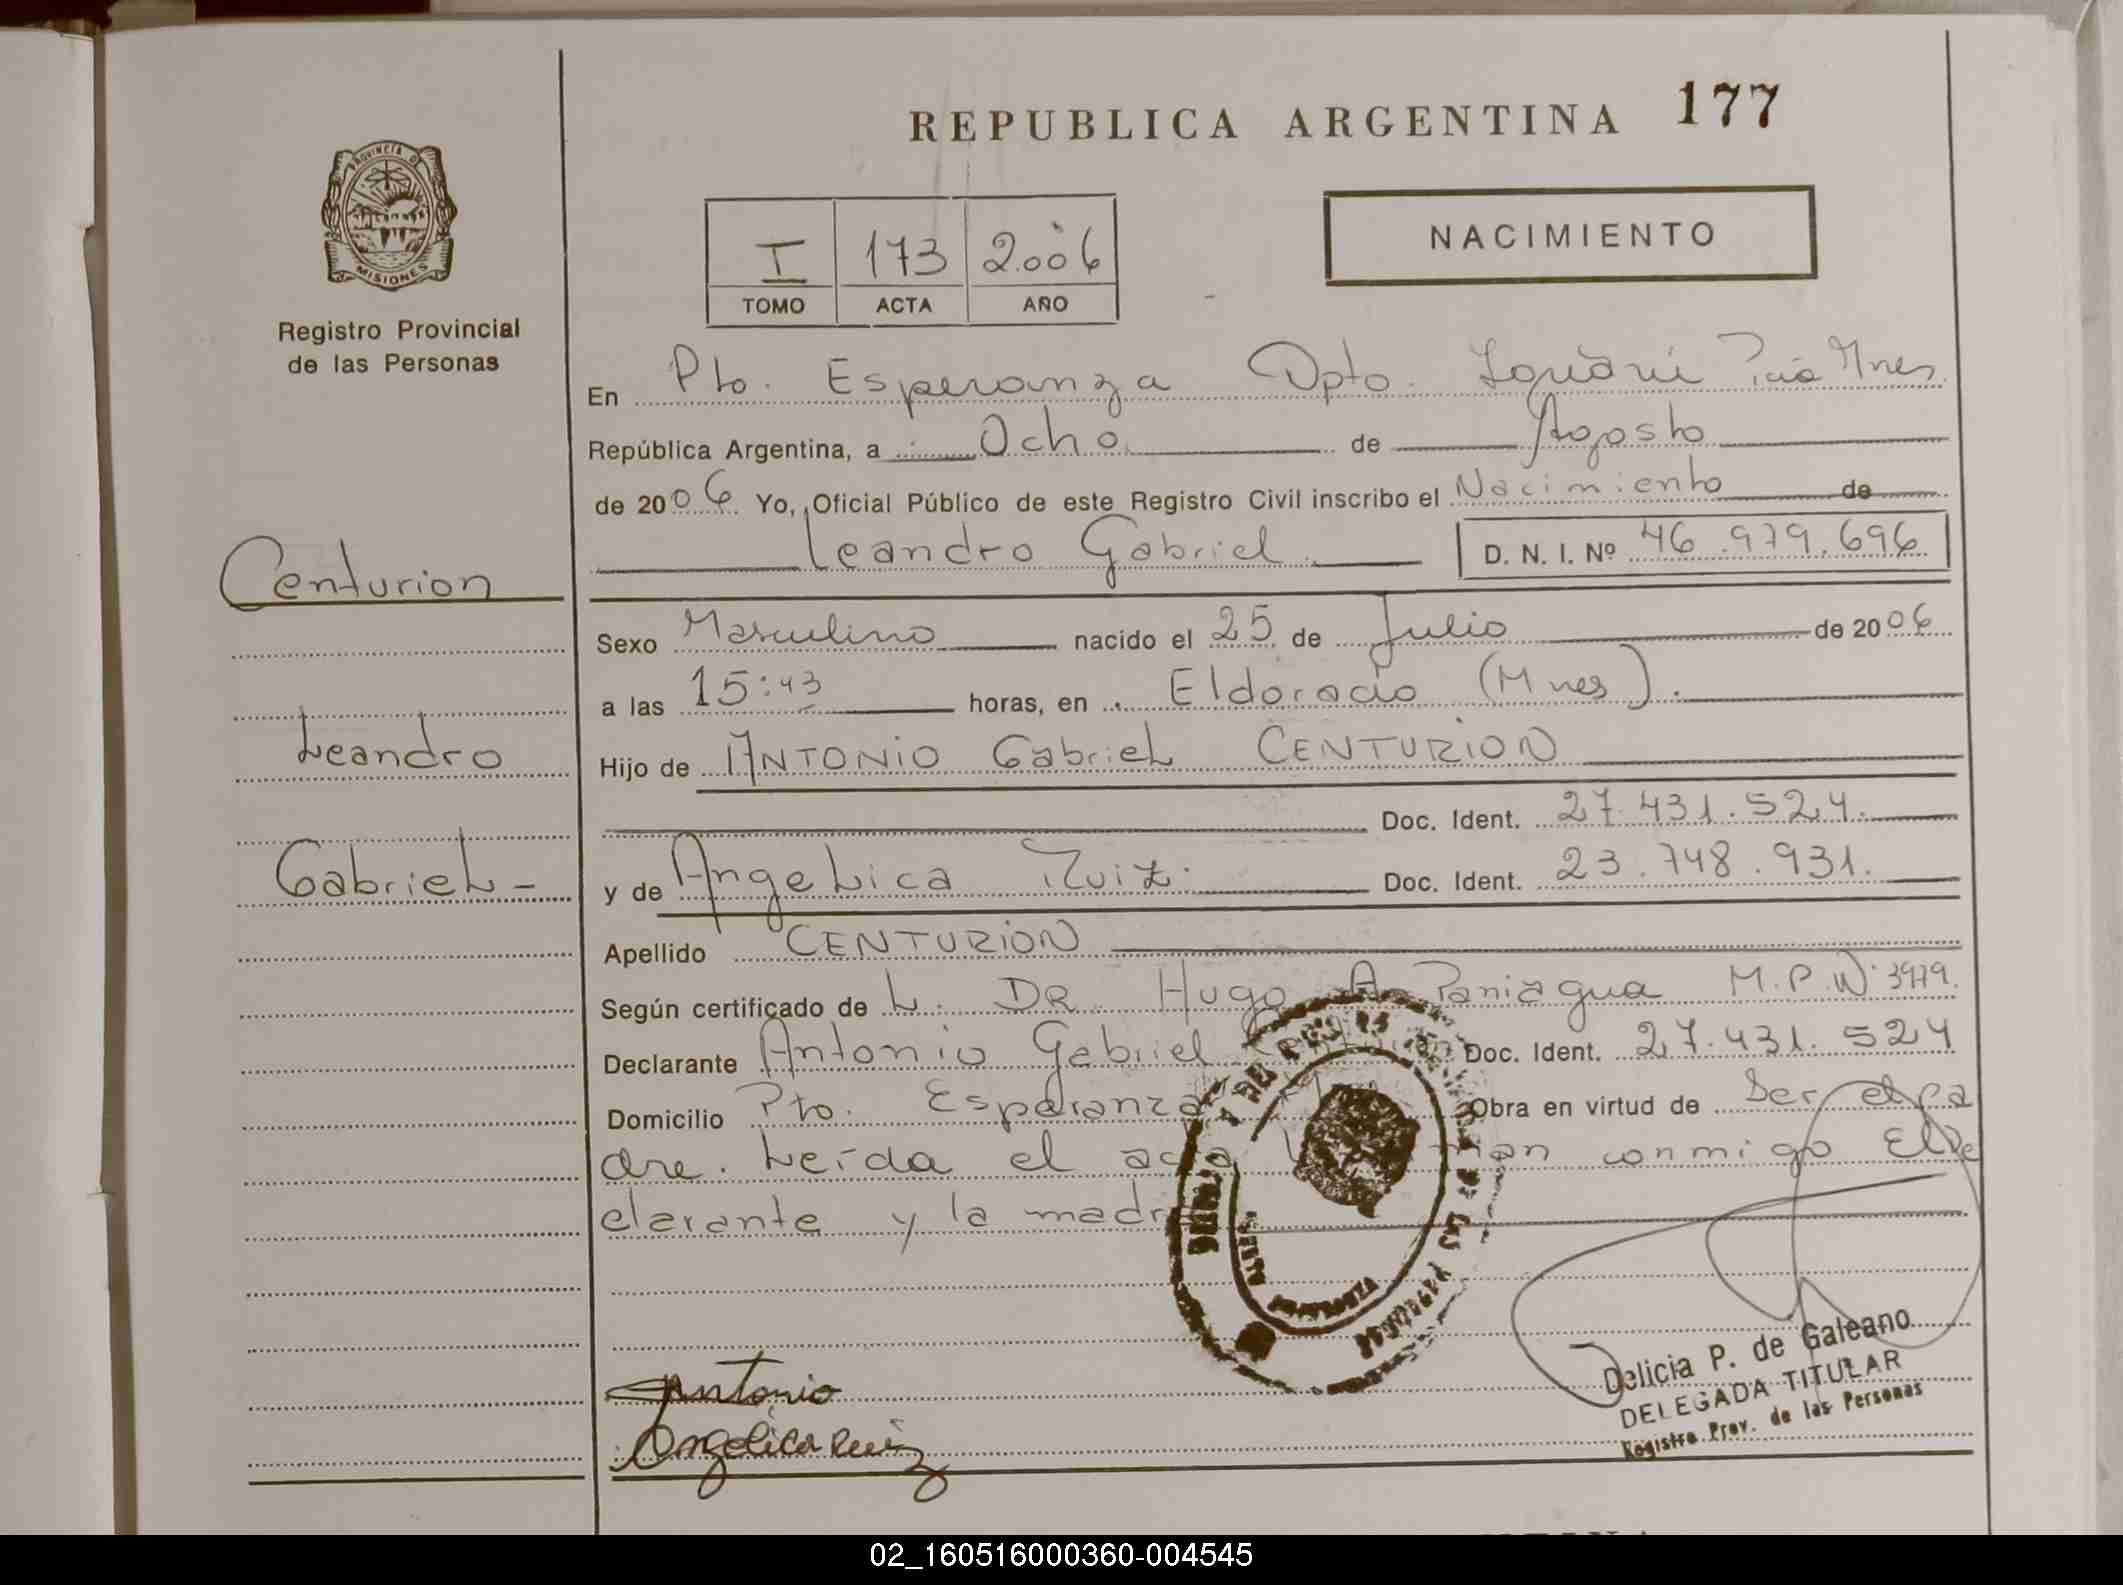 REPUBLICA ARGENTINA 177
PROVINCIA D
MISIONES
Registro Provincial
de las Personas
I 173 2.006
TOMO ACTA AÑO
NACIMIENTO
En Pto. Esperanza Dpto. Mnes
República Argentina, a Ocho de Agosto
de 2006 Yo, Oficial Público de este Registro Civil inscribo el Nacimiento de
Leandro Gabriel D. N. I. Nº 46.979.696
Centurion
Leandro
Gabriel-
Sexo Masculino nacido el 25 de Julio de 2006
a las 15:43 horas, en Eldorado (Mnes).
Hijo de ANTONIO GabrieL CENTURION
Doc. Ident. 27.431.524.
y de AngeLica Ruiz. Doc. Ident. 23.748.931.
Apellido CENTURION
Según certificado de L. DR. Hugo A. Paniagua M.P.Nº 3979.
Declarante Antonio Gabriel Centurion Doc. Ident. 27.431.524
Domicilio Pto. Esperanza Obra en virtud de Ser el pa
dre. Leída el acta conmigo El De
clarante y la madre
Antonio
Angelica Ruiz
Delicia P. de Galeano
DELEGADA TITULAR
Registro Prov. de las Personas
02_160516000360-004545